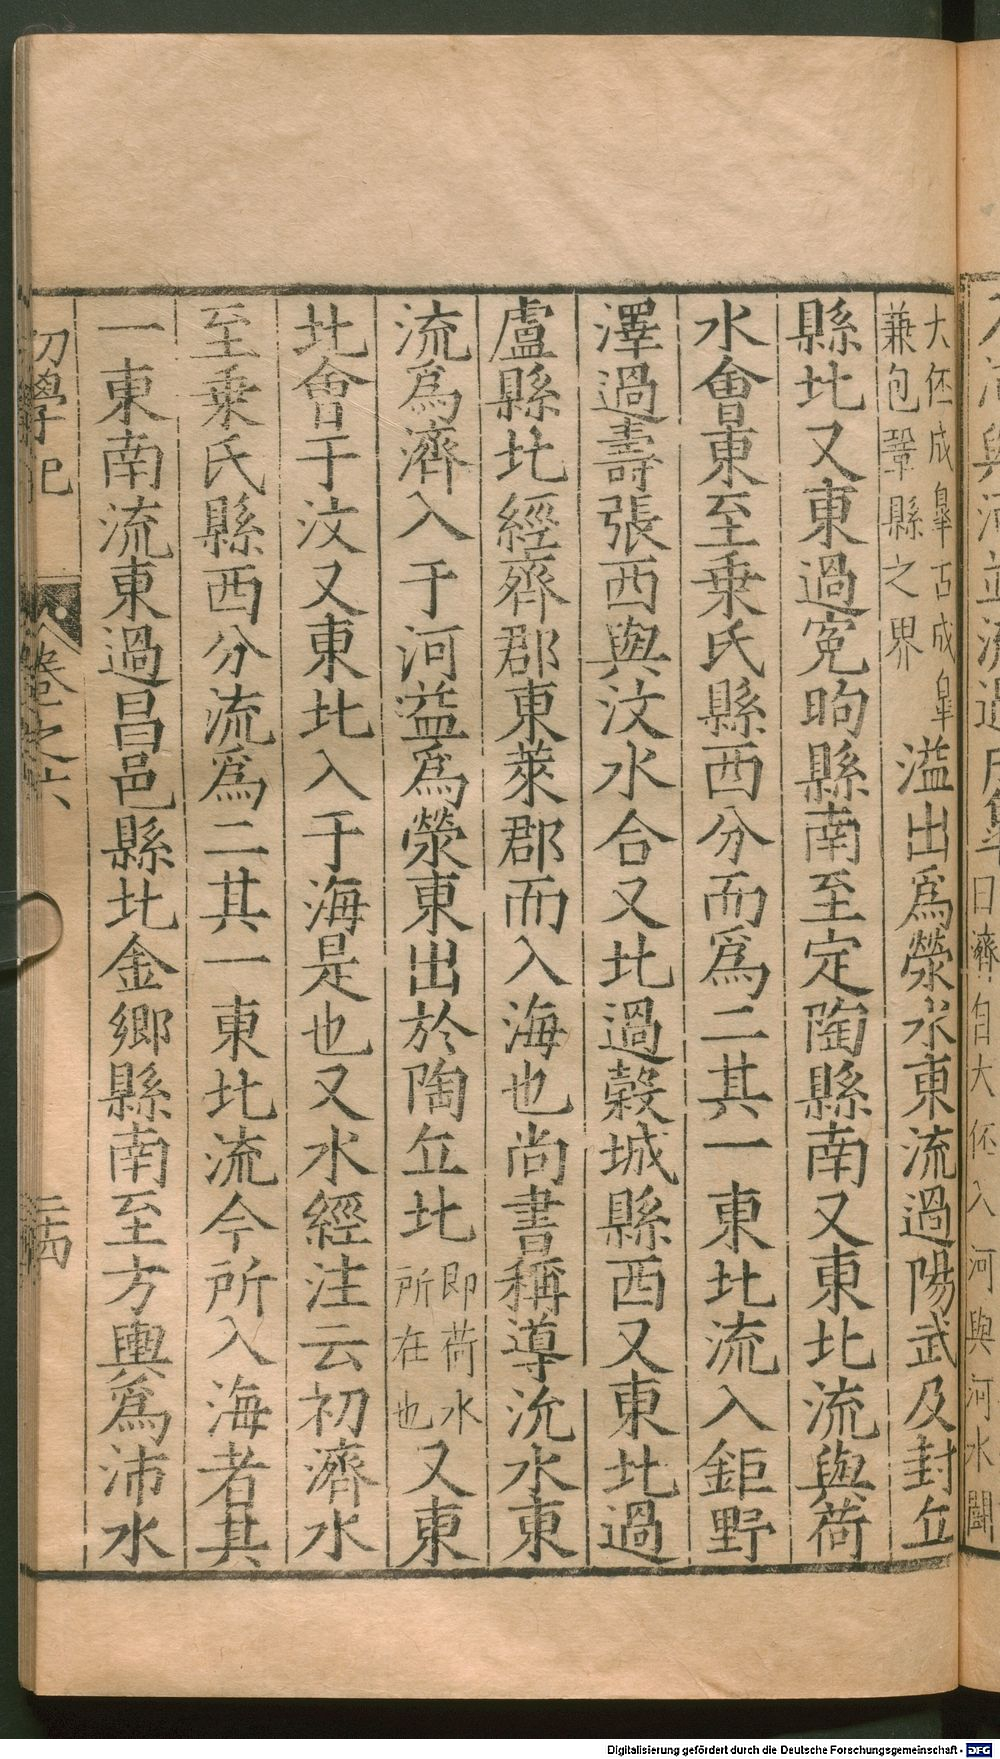 大伾成皐古成皐兼包鞏縣之界溢出爲滎水東流過陽武及封丘
縣北又東過寃昫縣南至定陶縣南又東北流與荷
水會東至乗氏縣西分而爲二其一東北流入鉅野
澤過壽張西與汶水合又北過榖城縣西又東北過
盧縣北經齊郡東萊郡而入海也尚書稱導沇水東
流爲濟入于河益爲滎東出於陶丘北即荷水所在也又東
北會于汶又東北入于海是也又水經注云初濟水
至乗氏縣西分流爲二其一東北流今所入海者其
一東南流東過昌邑縣北金鄉縣南至方輿爲沛水
初學記 卷之六 二十四
Digitalisierung gefördert durch die Deutsche Forschungsgemeinschaft - DFG